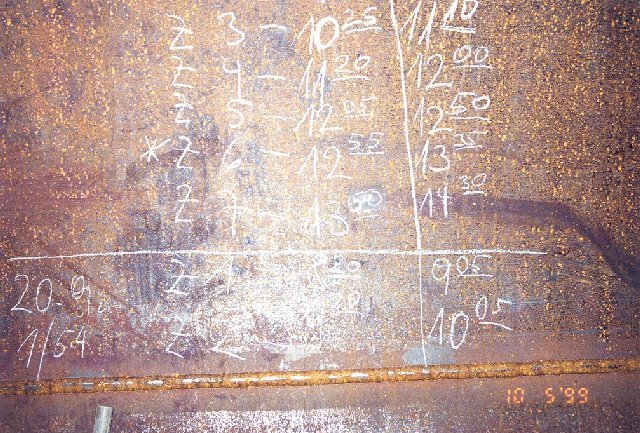 Z 3 - 10 25 11 10
Z 4 - 11 20 12 00
Z 5 - 12 05 12 50
* Z 6 - 12 55 13 35
Z 7 - 13 50 14 30
20.9. Z 1 - 9 05
1/54 Z 2 - 20 10 05
10 5'99